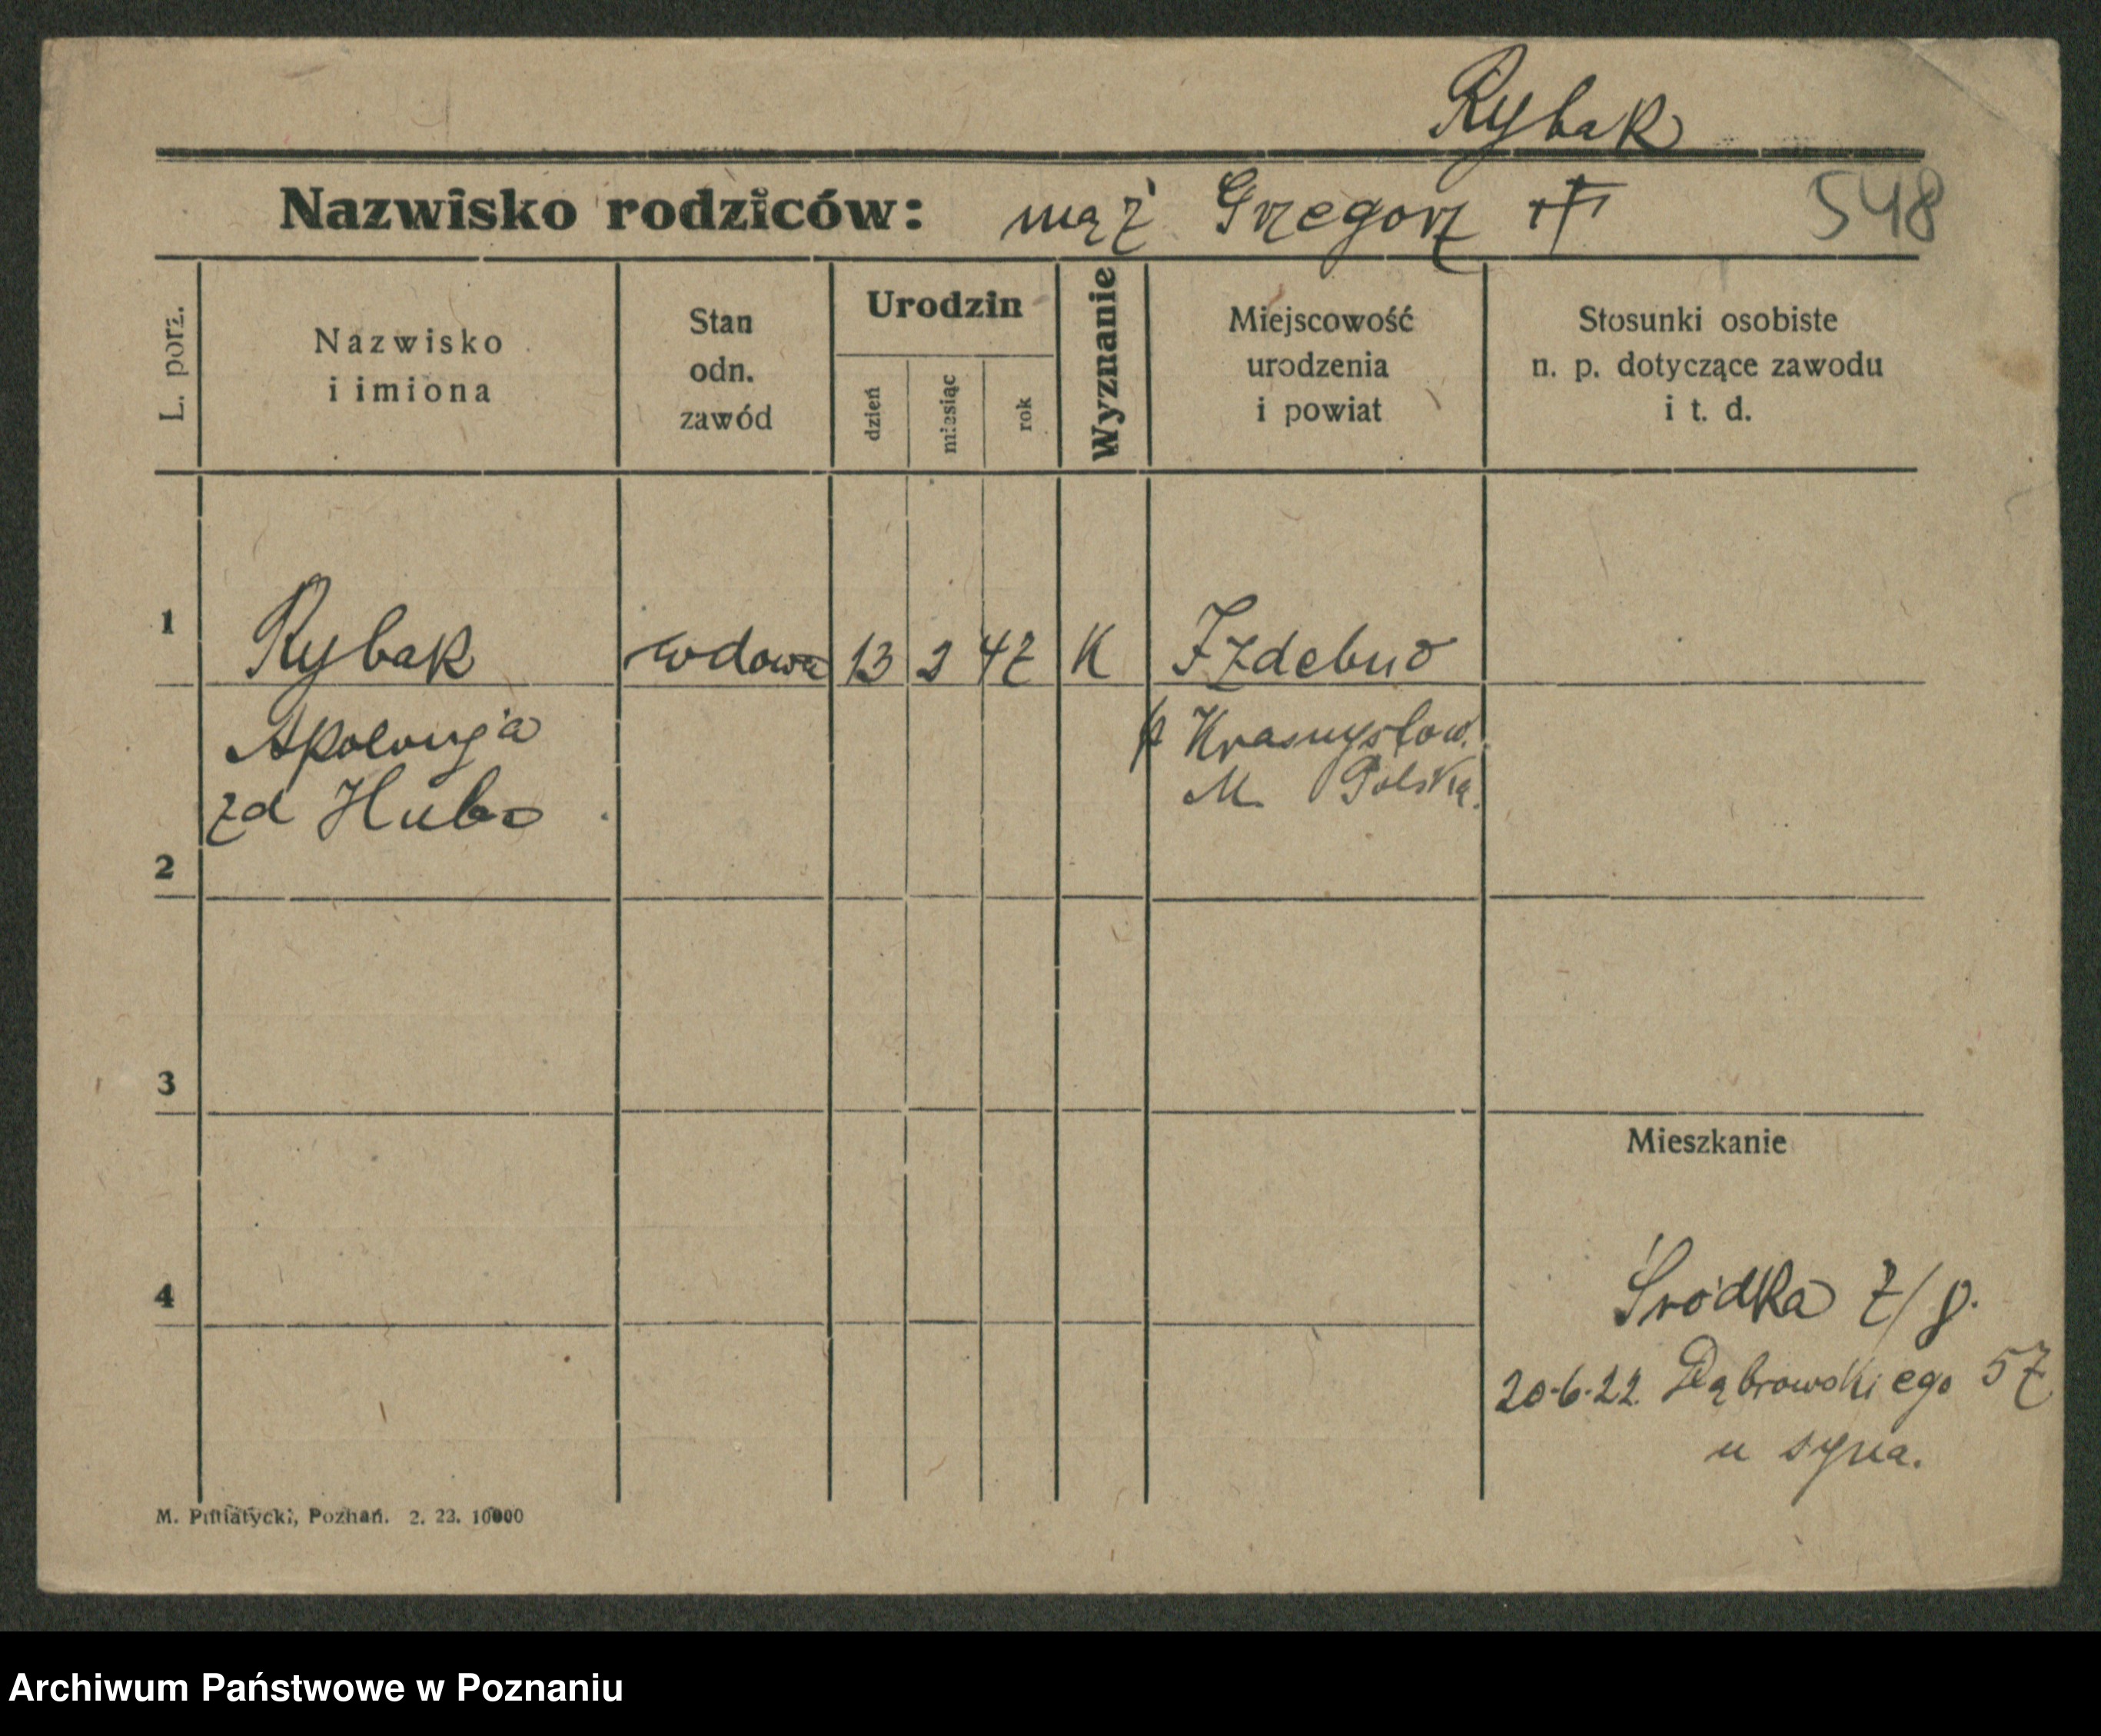 Rybak
Nazwisko rodziców: mąż Grzegorz 548
L. porz.
Nazwisko
i imiona
Stan
odn.
zawód
Urodzin
dzień
miesiąc
rok
Wyznanie
Miejscowość
urodzenia
i powiat
Stosunki osobiste
n. p. dotyczące zawodu
i t. d.
1 Rybak wdowa 13 2 47 K Izdebno
Apolonja p Krasnystaw.
zd M. Polska.
2
3
Mieszkanie
4 Śródka 7/8.
20·6·22. Dąbrowskiego 57
u syna.
M. Poznań. 2. 22. 10000
Archiwum Państwowe w Poznaniu